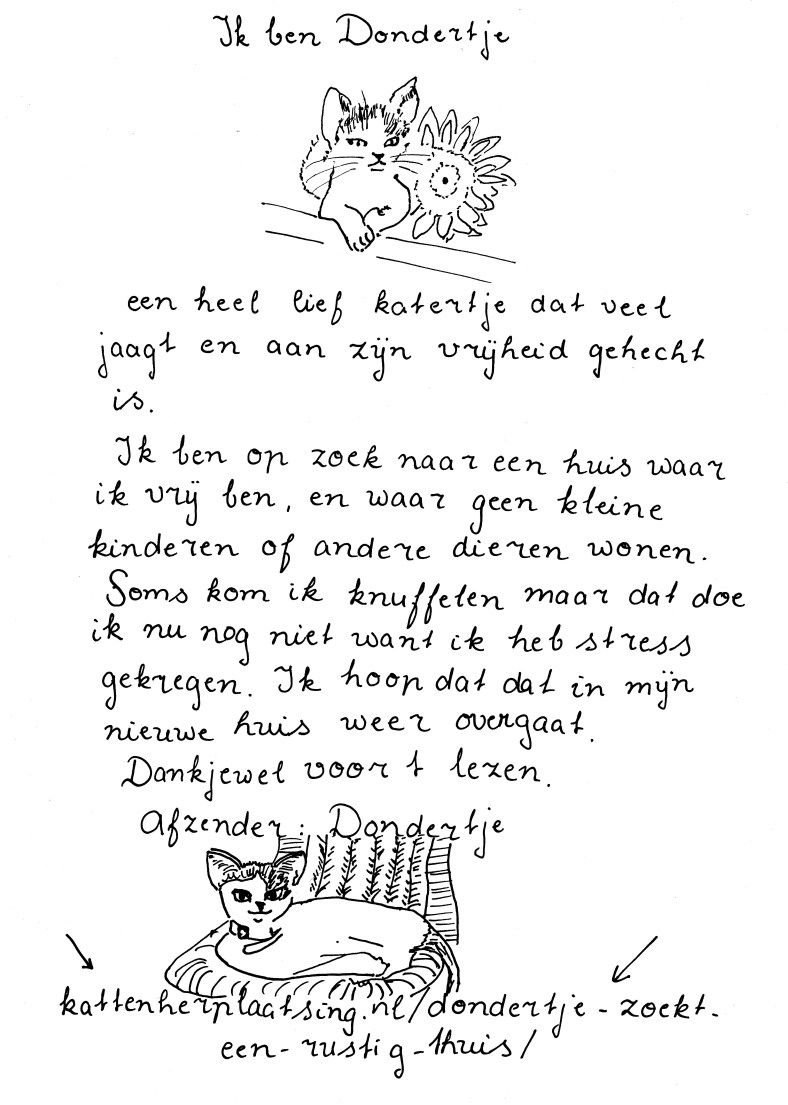 Ik ben Dondertje
een heel lief katertje dat veel
jaagt en aan zijn vrijheid gehecht
is.
Ik ben op zoek naar een huis waar
ik vrij ben, en waar geen kleine
kinderen of andere dieren wonen.
Soms kom ik knuffelen maar dat doe
ik nu nog niet want ik heb stress
gekregen. Ik hoop dat dat in mijn
nieuwe huis weer overgaat.
Dankjewel voor t lezen.
Afzender: Dondertje
kattenherplaatsing.nl/dondertje-zoekt-
een-rustig-thuis/